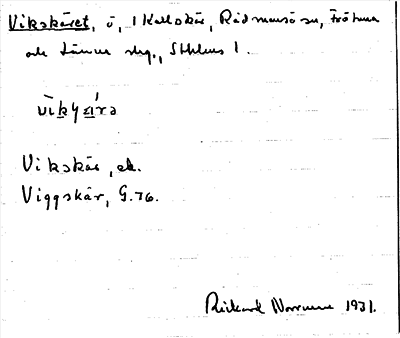 Vikskäret, ö, 1 Kallskär, Rådmansö sn, Frötuna
och Länna skg., Sthlms l.
Vikskär, ek.
Viggskär, G.76.
Rickard Norrman 1931.